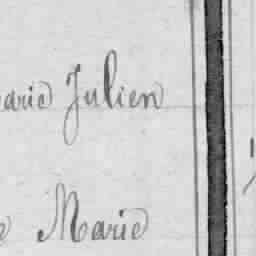 arie Julien
e Marie